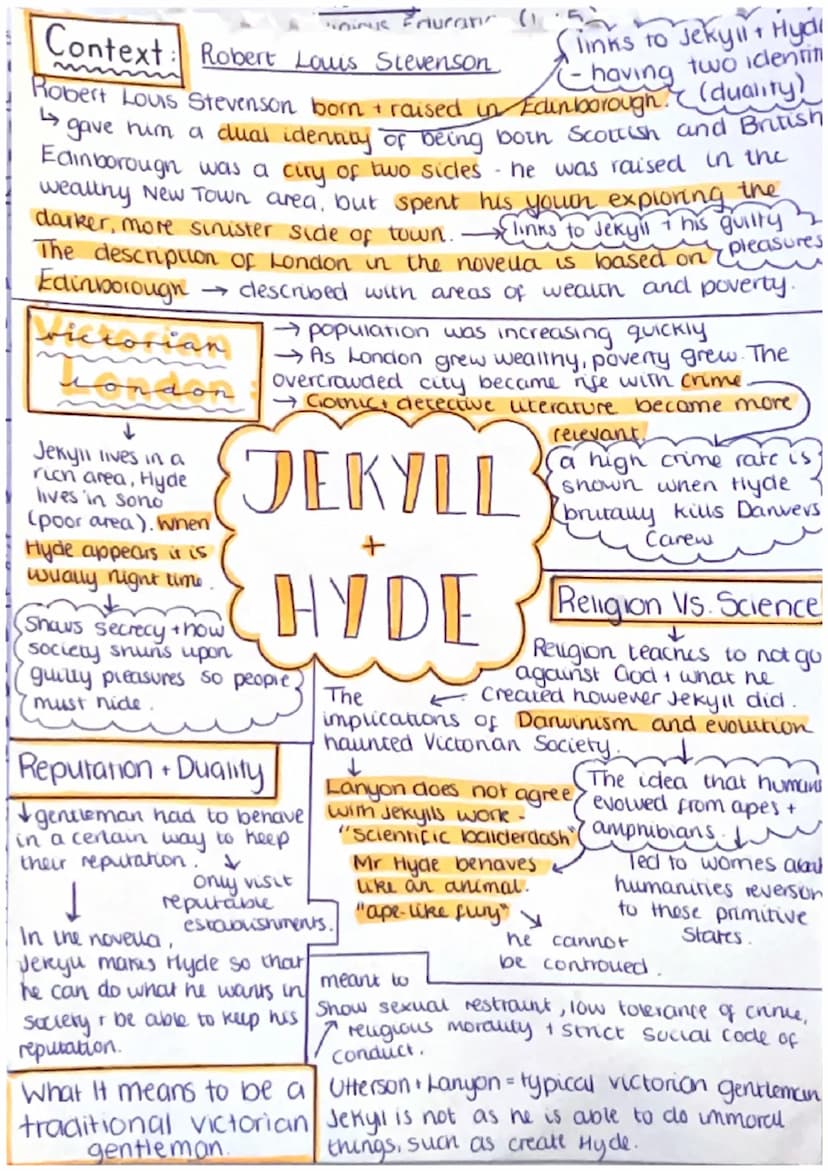 Context:
Robert Louis Stevenson
links to Jekyll + Hyde
- having two identiti
(duality)
Robert Louis Stevenson born + raised in Edinborough.
↳ gave him a dual identity of being both Scottish and British
Edinborough was a city of two sides - he was raised in the
wealthy New Town area, but spent his youth exploring the
darker, more sinister side of town. → links to Jekyll + his guilty
pleasures
The description of London in the novella is based on
Edinborough → described with areas of wealth and poverty.
Victorian
London:
→ population was increasing quickly
→ As London grew wealthy, poverty grew. The
overcrowded city became rife with crime
→ Gothic + detective literature became more
relevant.
a high crime rate is
shown when Hyde
brutally kills Danvers
Carew
Jekyll lives in a
rich area, Hyde
lives in soho
(poor area). When
Hyde appears it is
usually night time.
Shows secrecy + how
society shuns upon
guilty pleasures so people
must hide.
JEKYLL
+
HYDE
Religion Vs. Science
Religion teaches to not go
against God + what he
created however Jekyll did.
The
implications of Darwinism and evolution
haunted Victorian Society.
Lanyon does not agree
with Jekylls work -
"scientific balderdash"
Mr Hyde behaves
like an animal.
"ape-like fury"
he cannot
be controlled.
The idea that humans
evolved from apes +
amphibians.
led to worries about
humanities reversion
to these primitive
States.
Reputation + Duality
gentleman had to behave
in a certain way to keep
their reputation.
only visit
reputable
establishments.
In the novella,
Jekyll makes Hyde so that
he can do what he wants in
society + be able to keep his
reputation.
What It means to be a
traditional victorian
gentleman.
meant to
Show sexual restraint, low tolerance of crime,
religious morality + strict social code of
conduct.
Utterson + Lanyon = typical victorian gentleman
Jekyll is not as he is able to do immoral
things, such as create Hyde.